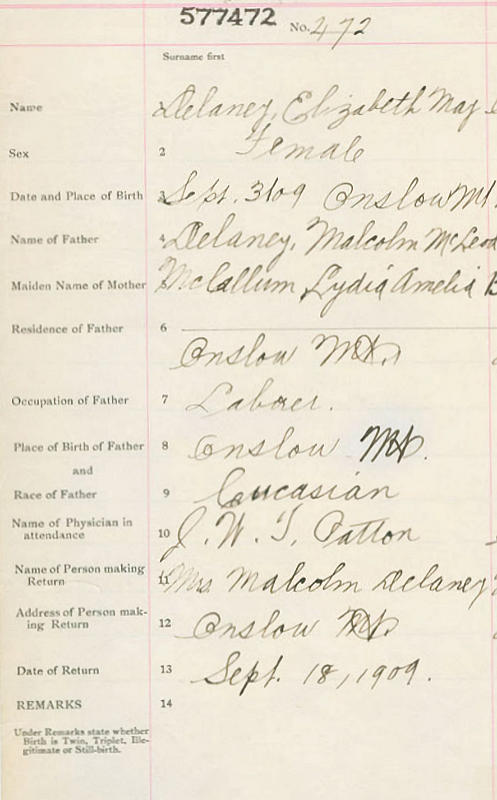 577472 No. 472
Surname first
Name Delaney, Elizabeth May
Sex 2 Female
Date and Place of Birth 3 Sept. 3/09 Onslow Mt.
Name of Father 4 Delaney, Malcolm McLeod
Maiden Name of Mother 5 McCallum Lydia Amelia B
Residence of Father 6
Onslow Mt.
Occupation of Father 7 Laborer.
Place of Birth of Father 8 Onslow Mt.
and
Race of Father 9 Caucasian
Name of Physician in
attendance 10 J. W. T. Patton
Name of Person making
Return 11 Mrs Malcolm Delaney
Address of Person mak-
ing Return 12 Onslow
Date of Return 13 Sept. 18, 1909.
REMARKS 14
Under Remarks state whether
Birth is Twin, Triplet, Ille-
gitimate or Still-birth.